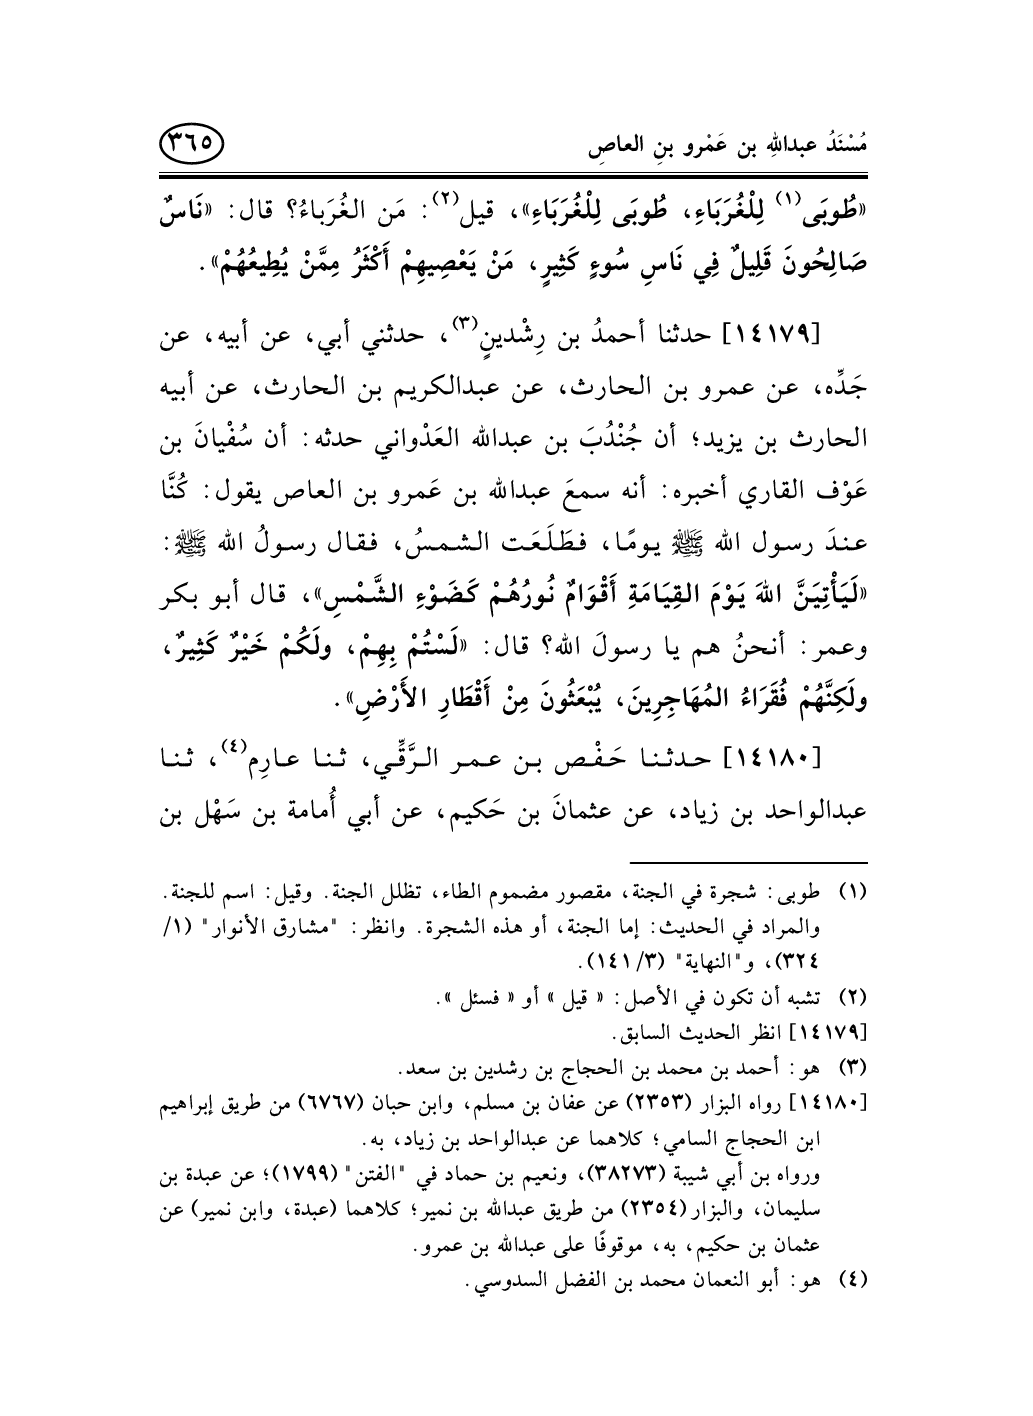 مُسْنَدُ عبداللهِ بن عَمْرو بنِ العاصِ ٣٦٥
«طُوبَى(١) لِلْغُرَبَاءِ، طُوبَى لِلْغُرَبَاءِ»، قيل(٢): مَن الغُرَباءُ؟ قال: «نَاسٌ
صَالِحُونَ قَلِيلٌ فِي نَاسِ سُوءٍ كَثِيرٍ، مَنْ يَعْصِيهِمْ أَكْثَرُ مِمَّنْ يُطِيعُهُمْ».
[١٤١٧٩] حدثنا أحمدُ بن رِشْدينٍ(٣)، حدثني أبي، عن أبيه، عن
جَدِّه، عن عمرو بن الحارث، عن عبدالكريم بن الحارث، عن أبيه
الحارث بن يزيد؛ أن جُنْدُبَ بن عبدالله العَدْواني حدثه: أن سُفْيانَ بن
عَوْف القاري أخبره: أنه سمعَ عبدالله بن عَمرو بن العاص يقول: كُنَّا
عندَ رسول الله ﷺ يومًا، فطَلَعَت الشمسُ، فقال رسولُ الله ﷺ:
«لَيَأْتِيَنَّ اللهَ يَوْمَ القِيَامَةِ أَقْوَامٌ نُورُهُمْ كَضَوْءِ الشَّمْسِ»، قال أبو بكر
وعمر: أنحنُ هم يا رسولَ الله؟ قال: «لَسْتُمْ بِهِمْ، ولَكُمْ خَيْرٌ كَثِيرٌ،
ولَكِنَّهُمْ فُقَرَاءُ المُهَاجِرِينَ، يُبْعَثُونَ مِنْ أَقْطَارِ الأَرْضِ».
[١٤١٨٠] حدثنا حَفْص بن عمر الرَّقِّي، ثنا عارِم(٤)، ثنا
عبدالواحد بن زياد، عن عثمانَ بن حَكيم، عن أبي أُمامة بن سَهْل بن
(١) طوبى: شجرة في الجنة، مقصور مضموم الطاء، تظلل الجنة. وقيل: اسم للجنة.
والمراد في الحديث: إما الجنة، أو هذه الشجرة. وانظر: "مشارق الأنوار" (١/
٣٢٤)، و"النهاية" (٣/ ١٤١).
(٢) تشبه أن تكون في الأصل: « قيل » أو « فسئل ».
[١٤١٧٩] انظر الحديث السابق.
(٣) هو: أحمد بن محمد بن الحجاج بن رشدين بن سعد.
[١٤١٨٠] رواه البزار (٢٣٥٣) عن عفان بن مسلم، وابن حبان (٦٧٦٧) من طريق إبراهيم
ابن الحجاج السامي؛ كلاهما عن عبدالواحد بن زياد، به.
ورواه بن أبي شيبة (٣٨٢٧٣)، ونعيم بن حماد في "الفتن" (١٧٩٩)؛ عن عبدة بن
سليمان، والبزار (٢٣٥٤) من طريق عبدالله بن نمير؛ كلاهما (عبدة، وابن نمير) عن
عثمان بن حكيم، به، موقوفًا على عبدالله بن عمرو.
(٤) هو: أبو النعمان محمد بن الفضل السدوسي.